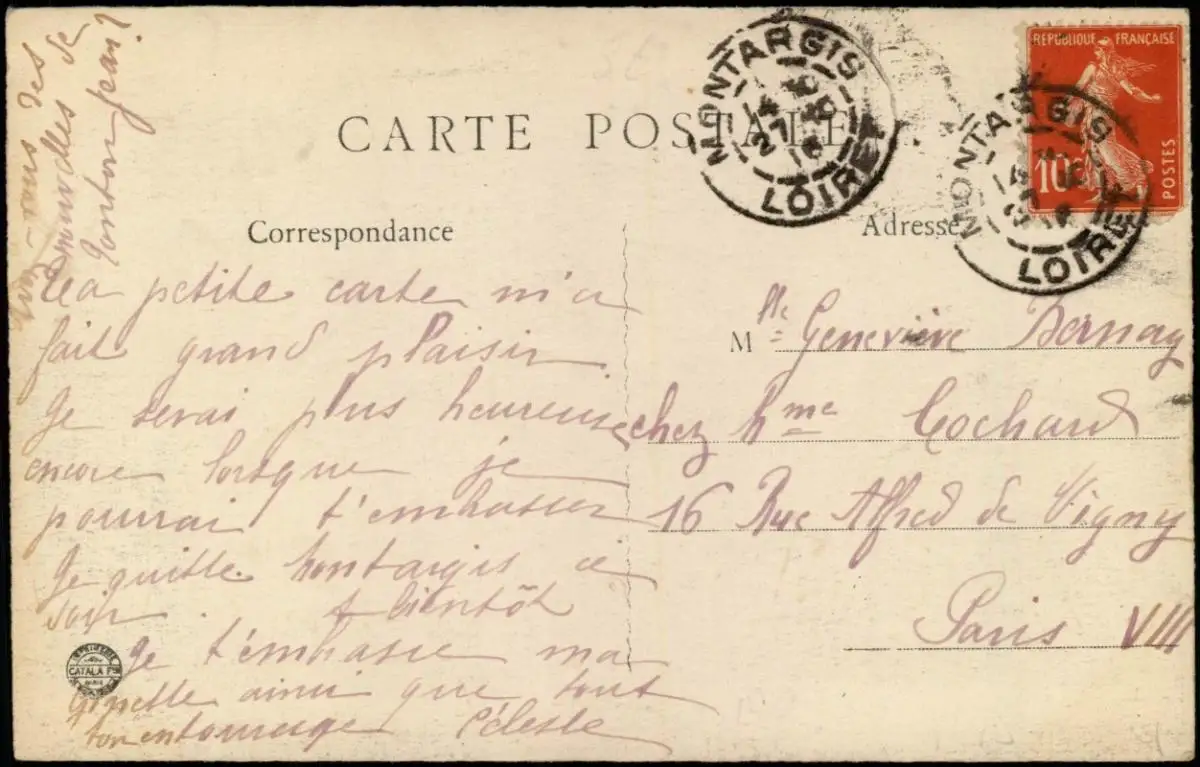 CARTE POSTALE
MONTARGIS
LOIRET
MONTARGIS
LOIRET
REPUBLIQUE FRANÇAISE
10c
POSTES
Correspondance
Adresse
-vous des
nouvelles de
Tonton Jean?
Ta petite carte m'a
fait grand plaisir
Je serai plus heureuse
encore lorsque je
pourrai t'embrasser
Je quitte Montargis ce
soir. A bientôt
Je t'embrasse ma
Ginette ainsi que tout
ton entourage Céleste
Mlle Geneviève Bernay
chez Mme Cochard
16 Rue Alfred de Vigny
Paris VIII
CATALA